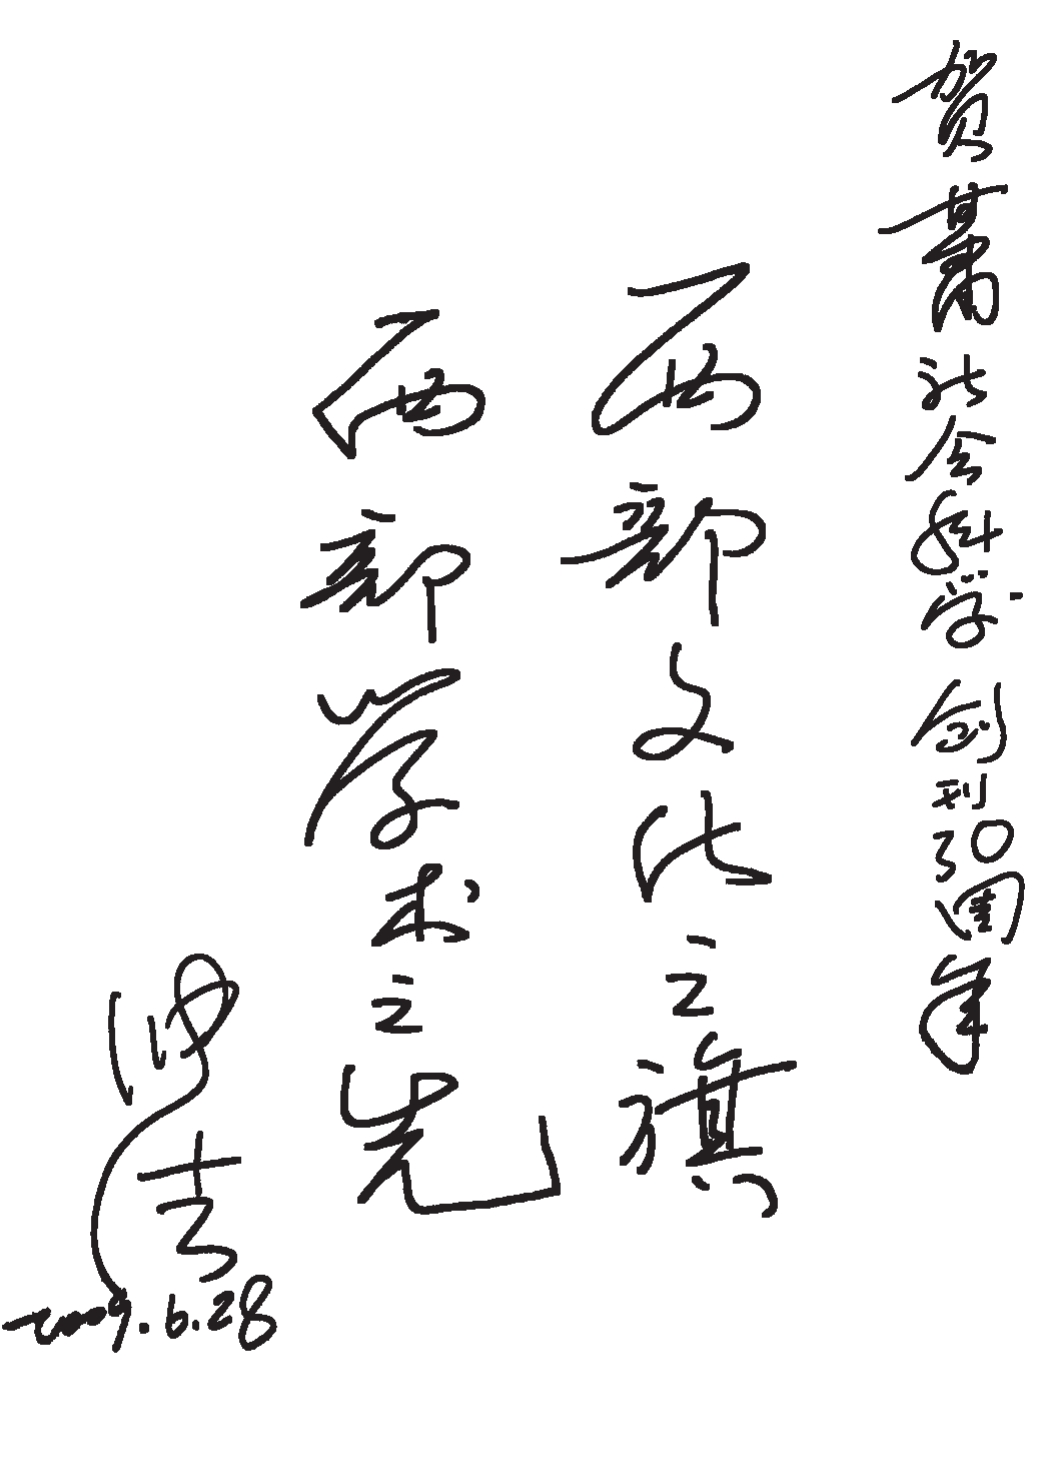 贺甘肃社会科学创刊30周年
西部文化之旗
西部学术之先
2009.6.28